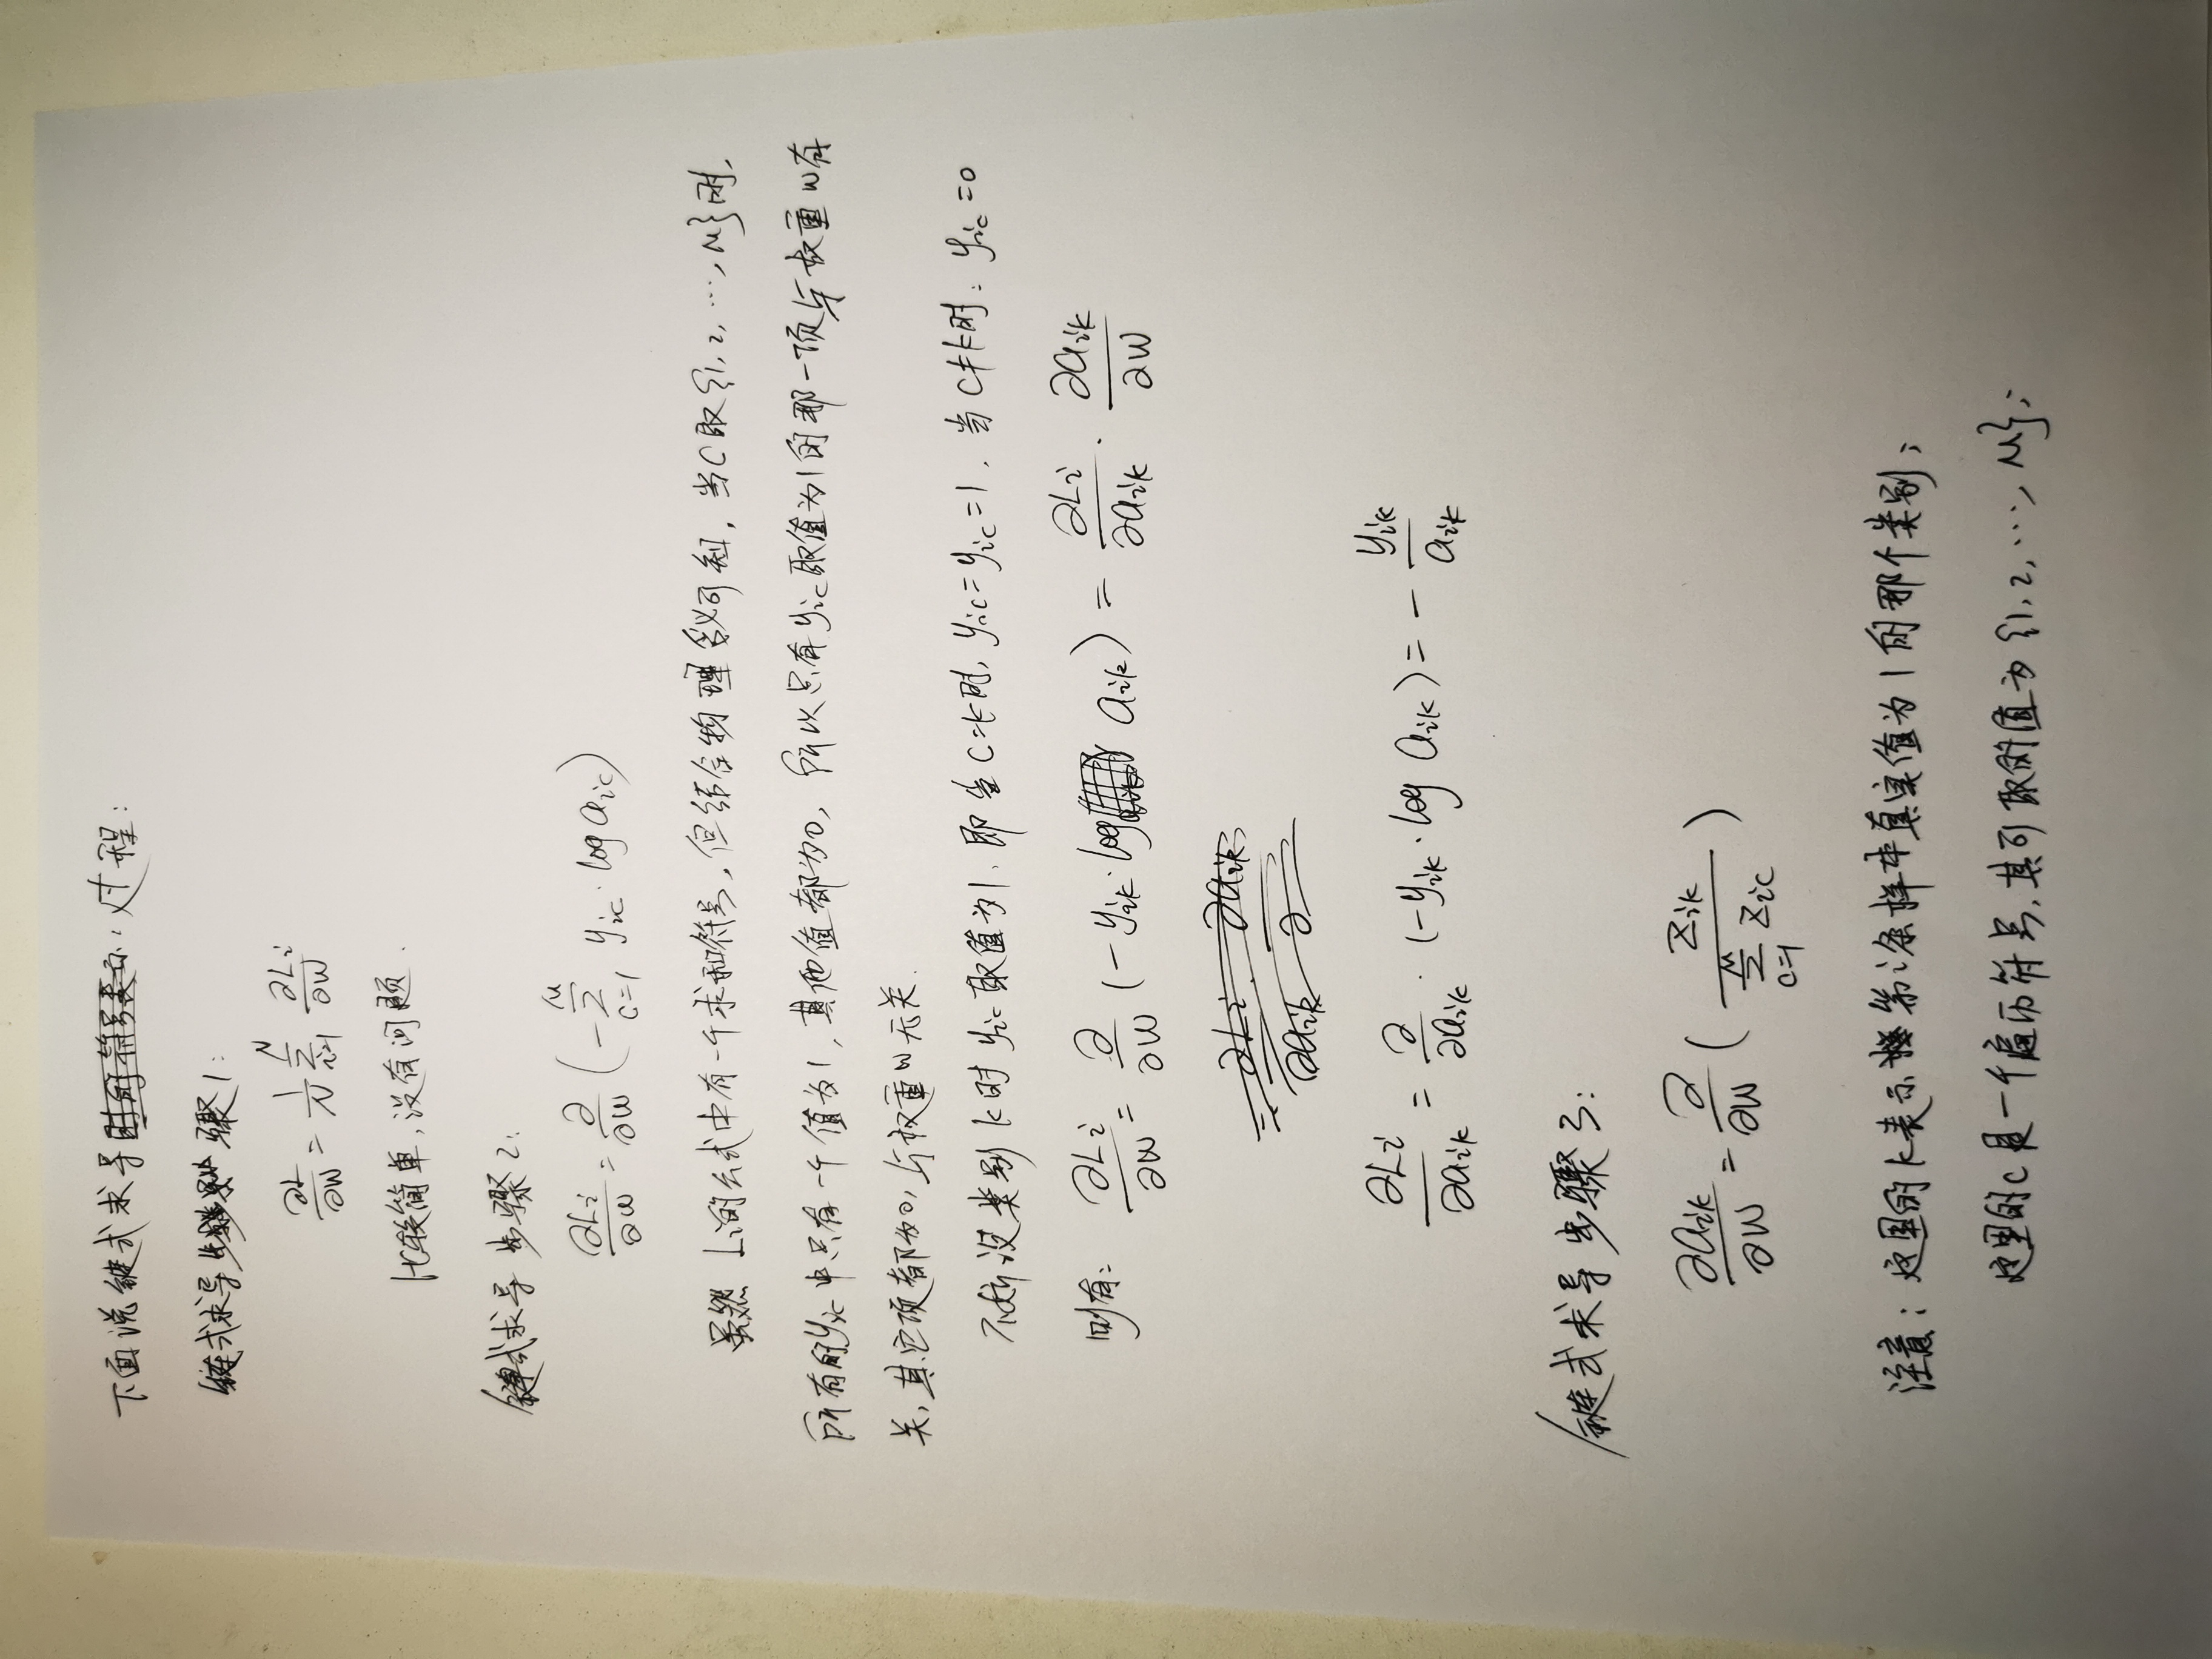 下面说链式求导过程:
链式求导步骤1:
∂L/∂W = 1/N ∑_{i=1}^{N} ∂Li/∂W
比较简单,没有问题.
链式求导步骤2:
∂Li/∂W = ∂/∂W (-∑_{c=1}^{M} y_{ic}·log a_{ic})
虽然Li的公式中有一个求和符号,但结合物理含义可知,当C取{1,2,…,M}时,
所有的y_{ic}中只有一个值为1,其他值都为0,所以只有y_{ic}取值为1的那一项与权重W有
关,其它项都为0,与权重W无关.
不妨设类别k时y_{ic}取值为1,即当C=k时,y_{ic}=y_{ic}=1,当C≠k时:y_{ic}=0
则有: ∂Li/∂W = ∂/∂W (-y_{ik}·log a_{ik}) = ∂Li/∂a_{ik} · ∂a_{ik}/∂W
∂Li/∂a_{ik} = ∂/∂a_{ik} · (-y_{ik}·log a_{ik}) = - y_{ik}/a_{ik}
链式求导步骤3:
∂a_{ik}/∂W = ∂/∂W ( z_{ik} / ∑_{c=1}^{M} z_{ic} )
注意:这里的k表示第i条样本真实值为1的那个类别;
这里的c是一个遍历符号,其可取的值为{1,2,…,M};